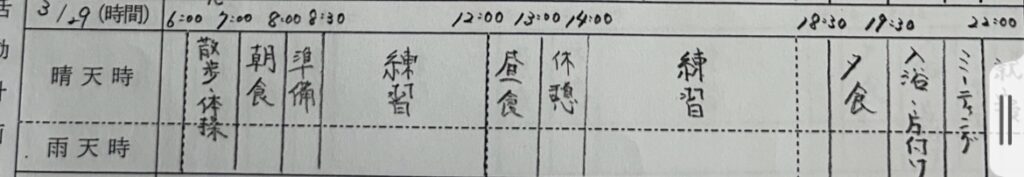 3/29 (時間) 6:00 7:00 8:00 8:30 12:00 13:00 14:00 18:30 19:30 22:00
晴天時 散歩・体操 朝食 準備 練習 昼食 休憩 練習 夕食 入浴・片付け ミーティング
雨天時